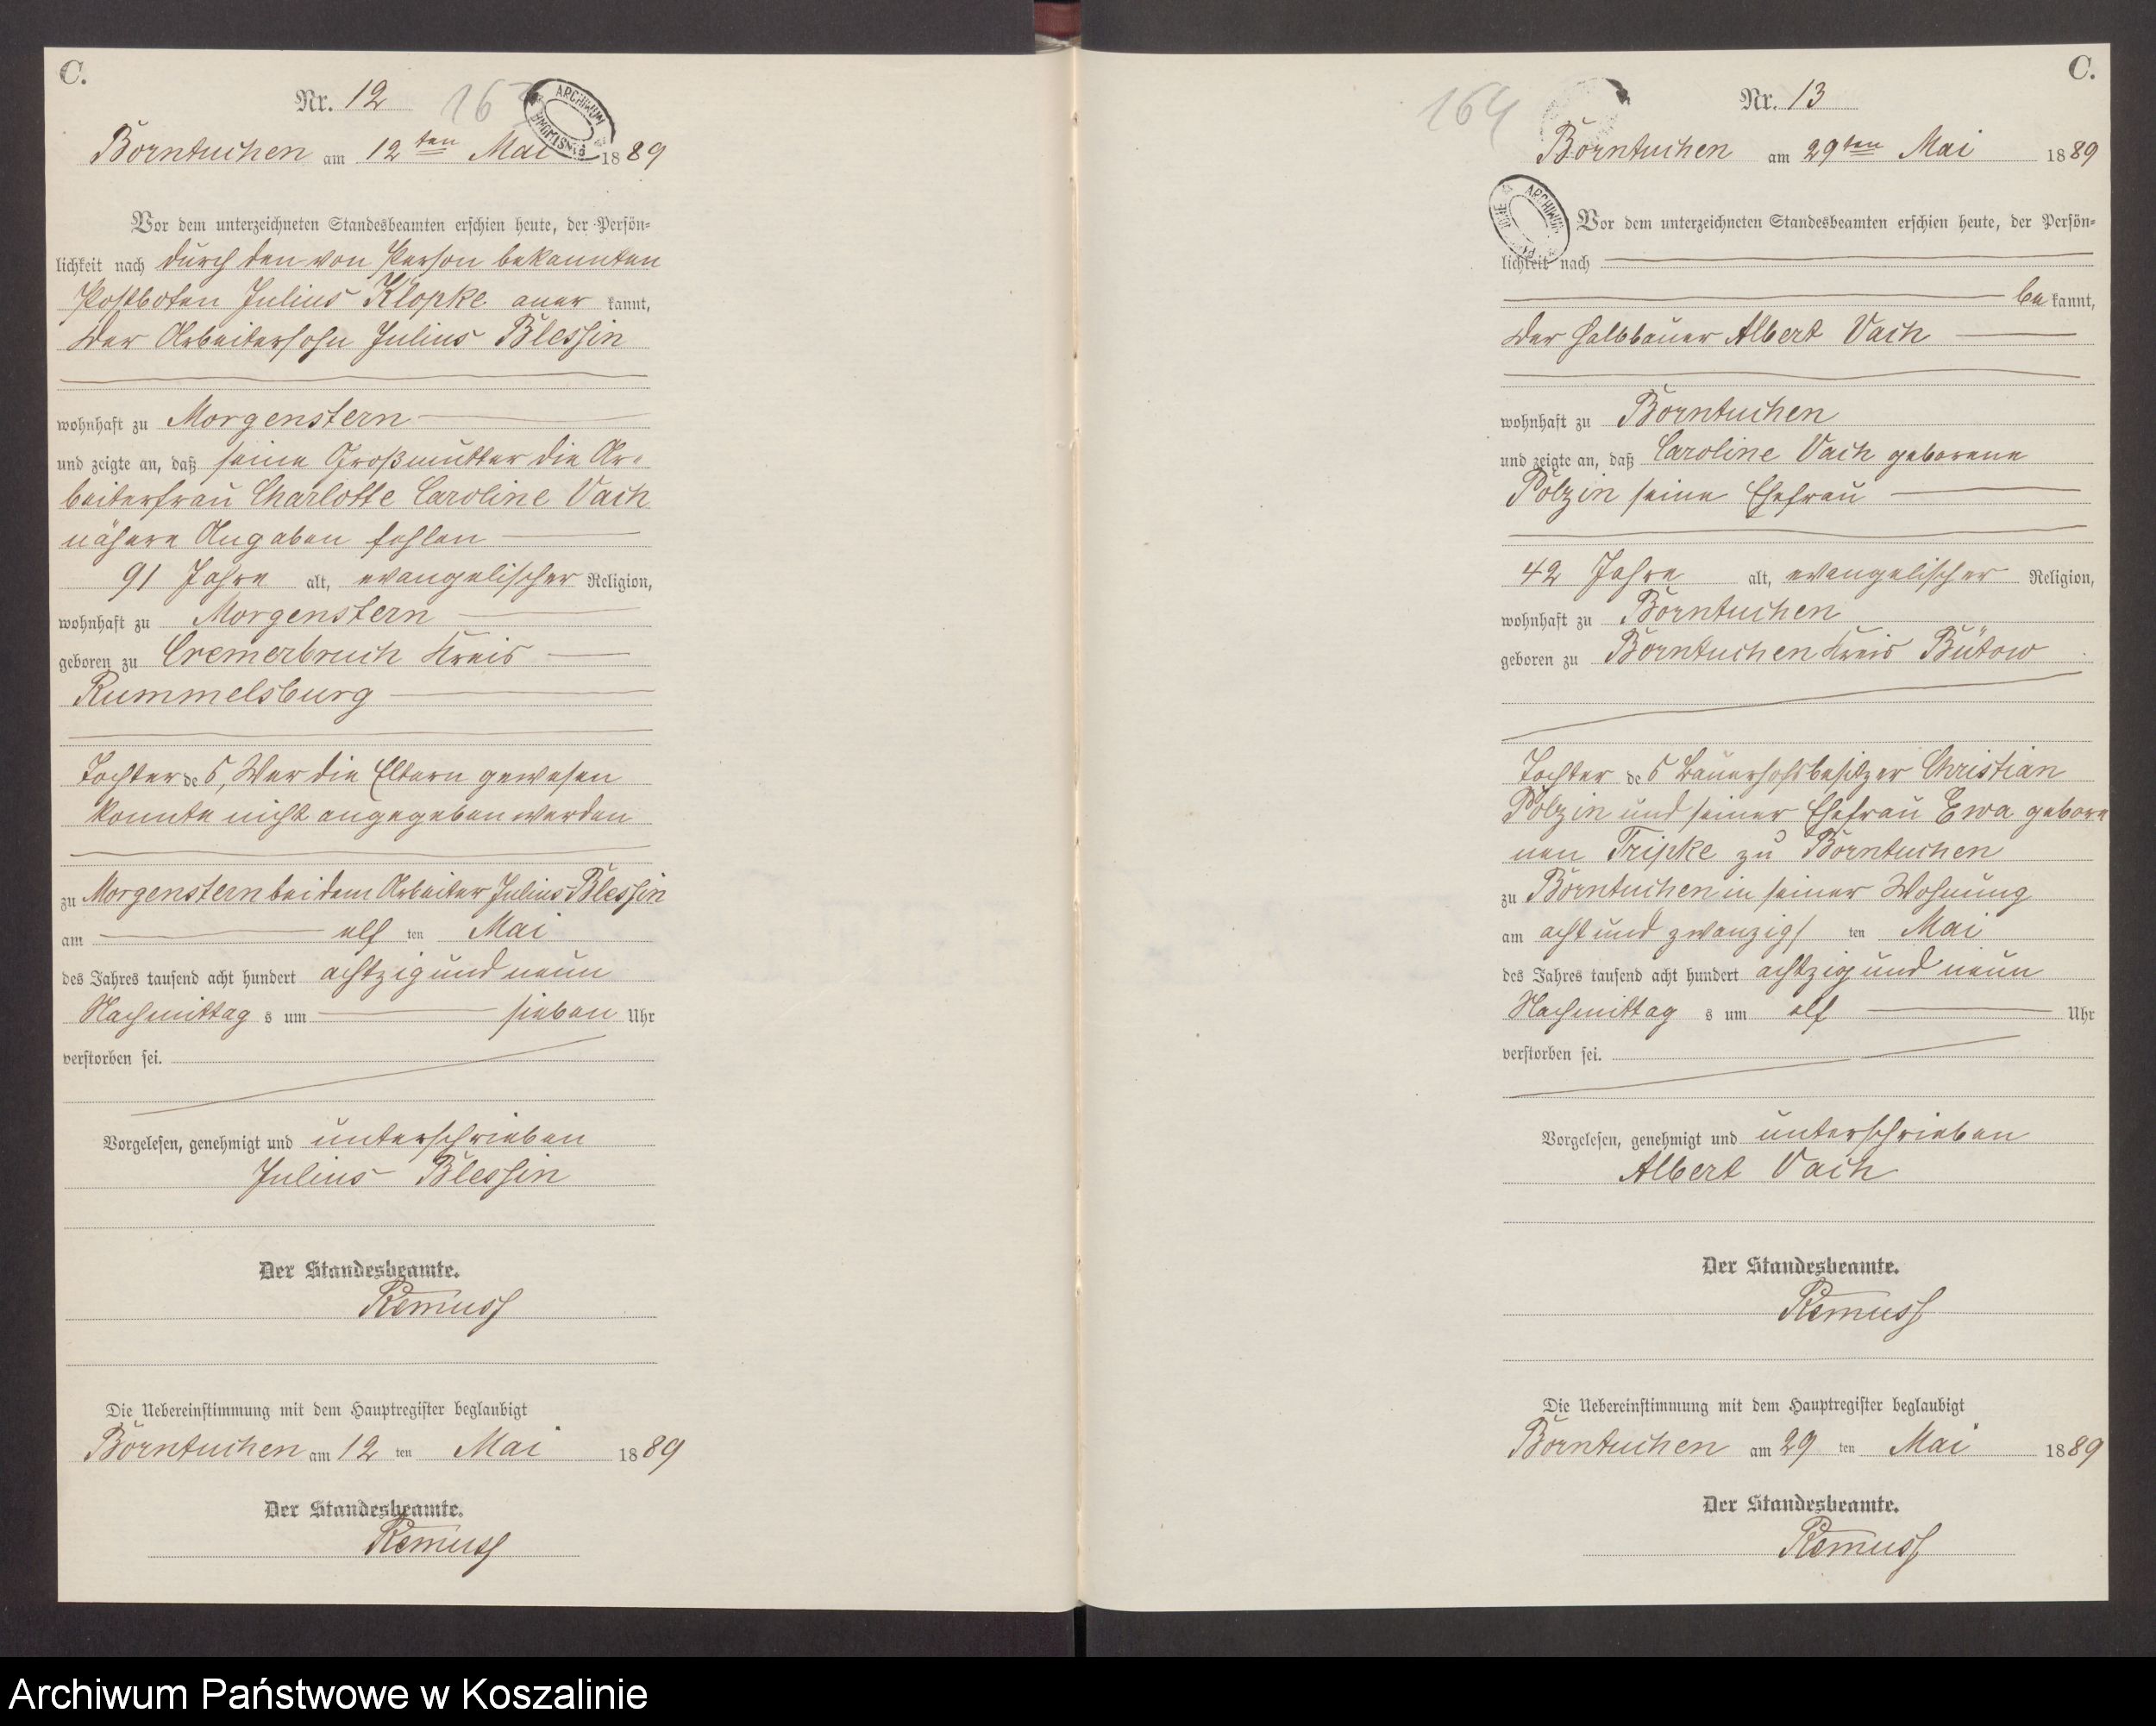 C.
Nr. 12
163
ARCHIWUM
Borntuchen am 12ten Mai 1889
Vor dem unterzeichneten Standesbeamten erschien heute, der Persön-
lichkeit nach durch den von Person bekannten
Postboten Julius Klopke aner kannt,
der Arbeitersohn Julius Blessin
wohnhaft zu Morgenstern
und zeigte an, daß seine Großmutter die Ar-
beiterfrau Charlotte Caroline Vach
nähere Angaben fehlen
91 Jahre alt, evangelischer Religion,
wohnhaft zu Morgenstern
geboren zu Cremerbruch Kreis
Rummelsburg
Tochter des, Wer die Eltern gewesen
konnte nicht angegeben werden
zu Morgenstern bei dem Arbeiter Julius Blessin
am elf ten Mai
des Jahres tausend acht hundert achtzig und neun
Nachmittag s um sieben Uhr
verstorben sei.
Vorgelesen, genehmigt und unterschrieben
Julius Blessin
Der Standesbeamte.
Remuss
Die Uebereinstimmung mit dem Hauptregister beglaubigt
Borntuchen am 12 ten Mai 1889
Der Standesbeamte.
Remuss
C.
Nr. 13
164
Borntuchen am 29ten Mai 1889
ARCHIWUM
Vor dem unterzeichneten Standesbeamten erschien heute, der Persön-
lichkeit nach
be kannt,
der Halbbauer Albert Vach
wohnhaft zu Borntuchen
und zeigte an, daß Caroline Vach geborene
Polzin seine Ehefrau
42 Jahre alt, evangelischer Religion,
wohnhaft zu Borntuchen
geboren zu Borntuchen Kreis Bütow
Tochter des Bauerhofsbesitzer Christian
Polzin und seiner Ehefrau Ewa gebore
nen Tripke zu Borntuchen
zu Borntuchen in seiner Wohnung
am acht und zwanzigs ten Mai
des Jahres tausend acht hundert achtzig und neun
Nachmittag s um elf Uhr
verstorben sei.
Vorgelesen, genehmigt und unterschrieben
Albert Vach
Der Standesbeamte.
Remuss
Die Uebereinstimmung mit dem Hauptregister beglaubigt
Borntuchen am 29 ten Mai 1889
Der Standesbeamte.
Remuss
Archiwum Państwowe w Koszalinie